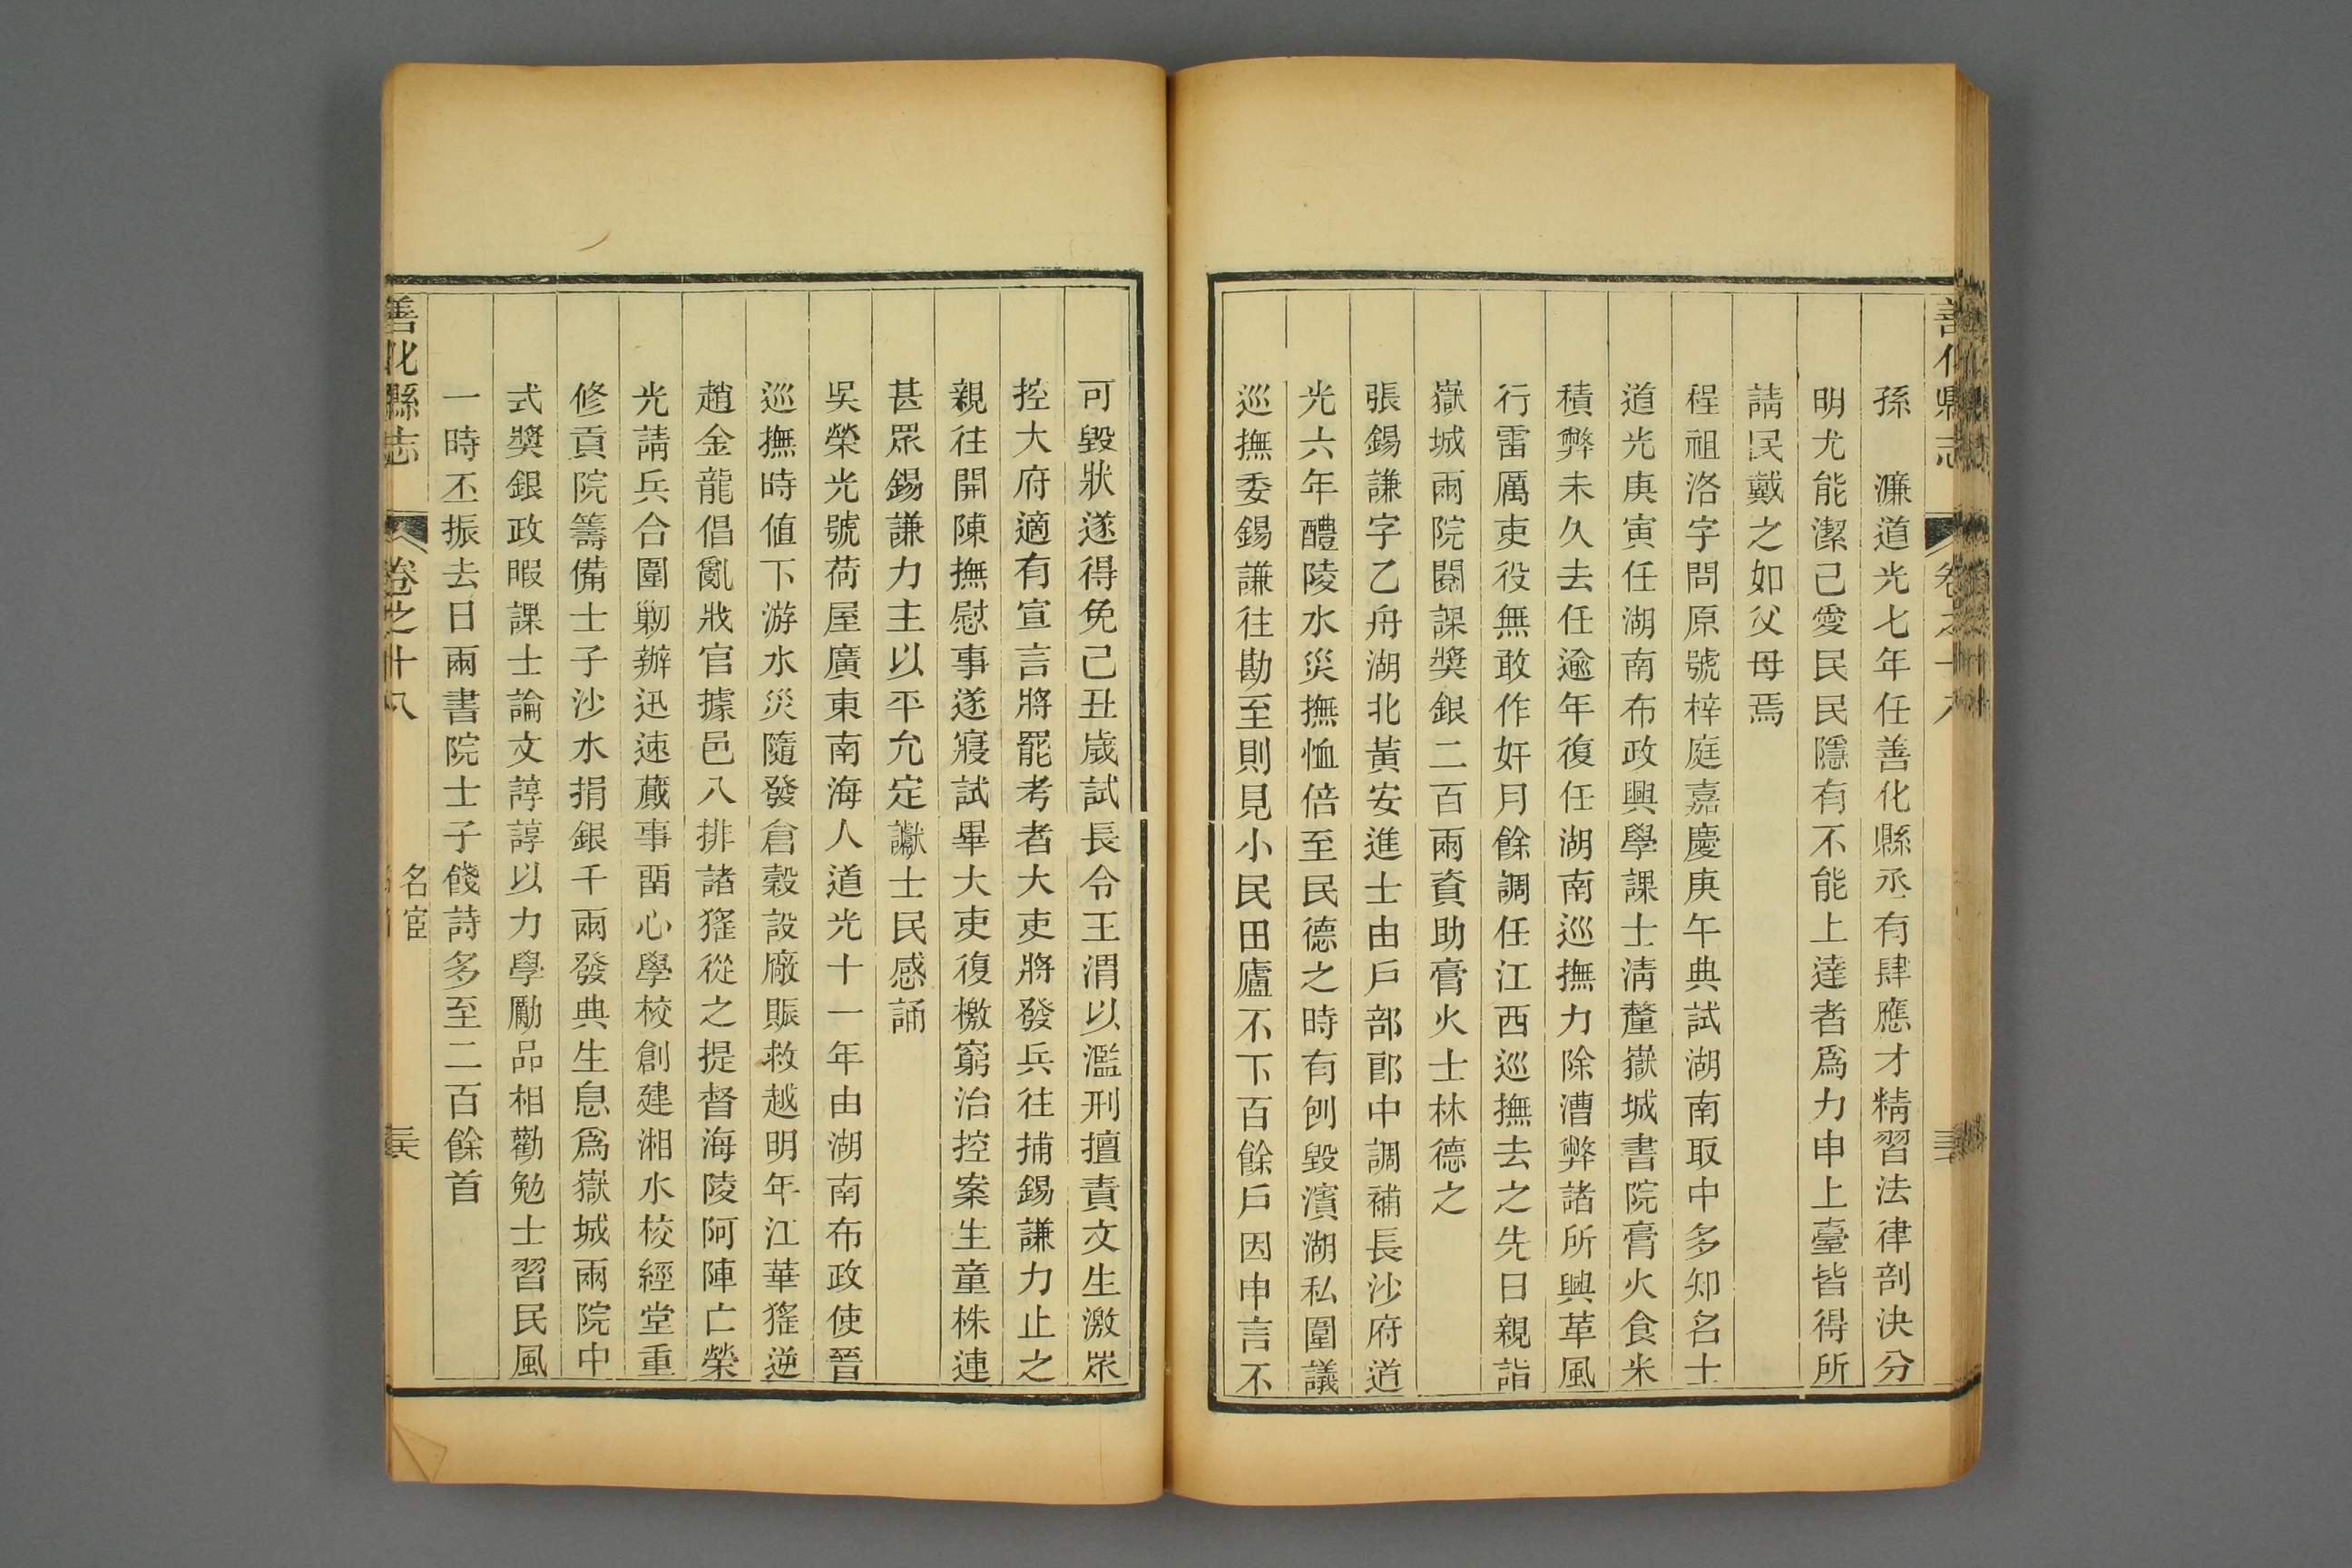 善化縣志
孫　濂道光七年任善化縣丞有肆應才精習法律剖決分
明尤能潔己愛民民隱有不能上達者爲力申上臺皆得所
請民戴之如父母焉
程祖洛字問原號梓庭嘉慶庚午典試湖南取中多知名士
道光庚寅任湖南布政興學課士淸釐嶽城書院膏火食米
積弊未久去任逾年復任湖南巡撫力除漕弊諸所興革風
行雷厲吏役無敢作奸月餘調任江西巡撫去之先日親詣
嶽城兩院閱課獎銀二百兩資助膏火士林德之
張錫謙字乙舟湖北黃安進士由戶部郎中調補長沙府道
光六年醴陵水災撫恤倍至民德之時有刨毀濱湖私圍議
巡撫委錫謙往勘至則見小民田廬不下百餘戶因申言不
可毀狀遂得免己丑歲試長令王渭以濫刑擅責文生激眾
控大府適有宣言將罷考者大吏將發兵往捕錫謙力止之
親往開陳撫慰事遂寢試畢大吏復檄窮治控案生童株連
甚眾錫謙力主以平允定讞士民感誦
吳榮光號荷屋廣東南海人道光十一年由湖南布政使晉
巡撫時值下游水災隨發倉穀設廠賑救越明年江華猺逆
趙金龍倡亂戕官據邑八排諸猺從之提督海陵阿陣亡榮
光請兵合圍勦辦迅速蕆事畱心學校創建湘水校經堂重
修貢院籌備士子沙水捐銀千兩發典生息爲嶽城兩院中
式獎銀政暇課士論文諄諄以力學勵品相勸勉士習民風
一時丕振去日兩書院士子餞詩多至二百餘首
善化縣志
卷之十八
名宦
三天